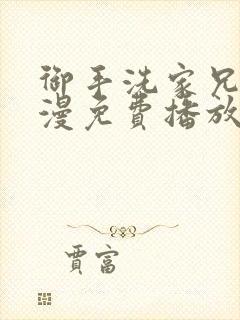 御手洗家兄
漫免費播放
賈富